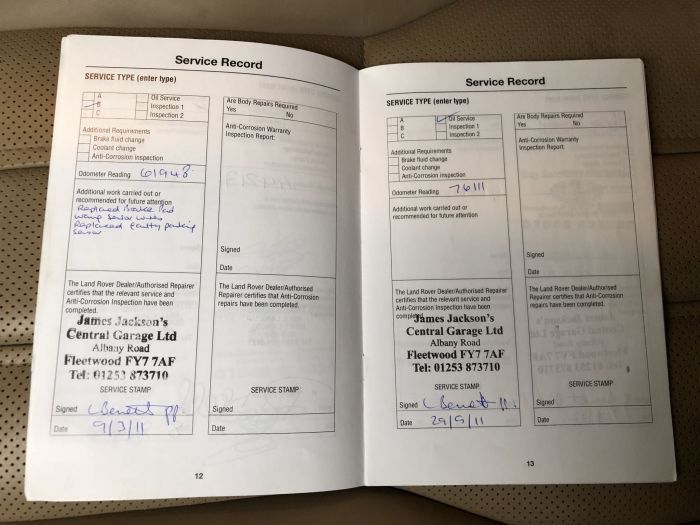 Service Record
SERVICE TYPE (enter type)
A
B
C
Oil Service
Inspection 1
Inspection 2
Additional Requirements
Brake fluid change
Coolant change
Anti-Corrosion inspection
Odometer Reading 61948
Additional work carried out or
recommended for future attention
Replaced Brake Pad
Replaced faulty parking
sensor
The Land Rover Dealer/Authorised Repairer
certifies that the relevant service and
Anti-Corrosion Inspection have been
completed.
James Jackson's
Central Garage Ltd
Albany Road
Fleetwood FY7 7AF
Tel: 01253 873710
SERVICE STAMP
Signed
Date 9/3/11
Are Body Repairs Required
Yes No
Anti-Corrosion Warranty
Inspection Report:
Signed
Date
The Land Rover Dealer/Authorised
Repairer certifies that Anti-Corrosion
repairs have been completed.
SERVICE STAMP
Signed
Date
12
Service Record
SERVICE TYPE (enter type)
A
B
C
Oil Service
Inspection 1
Inspection 2
Additional Requirements
Brake fluid change
Coolant change
Anti-Corrosion inspection
Odometer Reading 76111
Additional work carried out or
recommended for future attention
The Land Rover Dealer/Authorised Repairer
certifies that the relevant service and
Anti-Corrosion Inspection have been
completed.
James Jackson's
Central Garage Ltd
Albany Road
Fleetwood FY7 7AF
Tel: 01253 873710
SERVICE STAMP
Signed
Date 29/9/11
Are Body Repairs Required
Yes No
Anti-Corrosion Warranty
Inspection Report:
Signed
Date
The Land Rover Dealer/Authorised
Repairer certifies that Anti-Corrosion
repairs have been completed.
SERVICE STAMP
Signed
Date
13